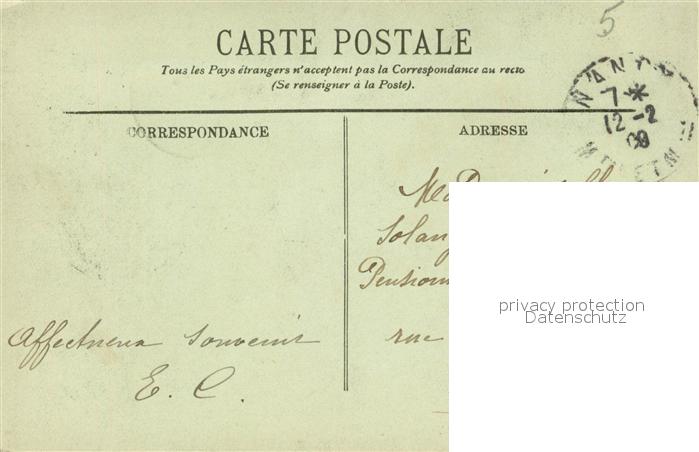 5
CARTE POSTALE
Tous les Pays étrangers n'acceptent pas la Correspondance au recto
(Se renseigner à la Poste).
NANCY
7 *
12 - 2
09
CORRESPONDANCE
ADRESSE
Affectueux souvenir
E. C.
rue
privacy protection
Datenschutz